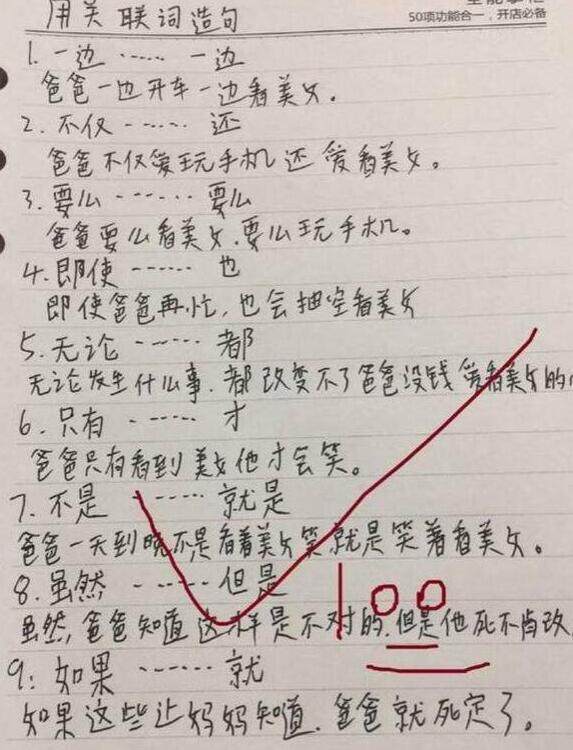 用关联词造句
50项功能合一，开店必备
1. 一边 …… 一边
爸爸一边开车一边看美女。
2. 不仅 …… 还
爸爸不仅爱玩手机还爱看美女。
3. 要么 …… 要么
爸爸要么看美女.要么玩手机。
4. 即使 …… 也
即使爸爸再忙,也会抽空看美女
5. 无论 …… 都
无论发生什么事.都改变不了爸爸没钱爱看美女的
6. 只有 …… 才
爸爸只有看到美女他才会笑。
7. 不是 …… 就是
爸爸一天到晚不是看着美女笑就是笑着看美女。
8. 虽然 …… 但是
100
虽然,爸爸知道这样是不对的.但是他死不肯改
9: 如果 …… 就
如果这些让妈妈知道.爸爸就死定了。